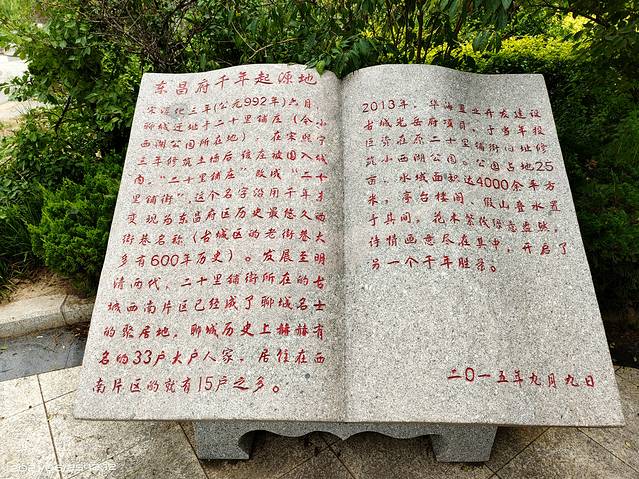 东昌府千年起源地
宋淳化三年(公元992年)六月，
聊城迁地于二十里铺庄（今小
西湖公园所在地），在宋熙宁
三年修筑土墙后，该庄被围入城
内，“二十里铺庄”改成“二十
里铺街”，这个名字沿用千年才
变现为东昌府区历史最悠久西
街巷名称（古城区的老街巷大
多有600年历史）。发展至明
清两代，二十里铺街所在的古
城西南片区已经成了聊城名士
的聚居地，聊城历史上赫赫有
名的33户大户人家，居住在西
南片区的就有15户之多。
2013年，华海置业开发建设
古城光岳府项目，于当年投
巨资在原二十里铺街旧址修
筑小西湖公园。公园占地25
亩，水域面积达4000余平方
米，亭台楼阁、假山叠水置
于其间，花木繁茂绿意盎然，
诗情画意尽在其中，开启了
另一个千年胜景。
二〇一五年九月九日